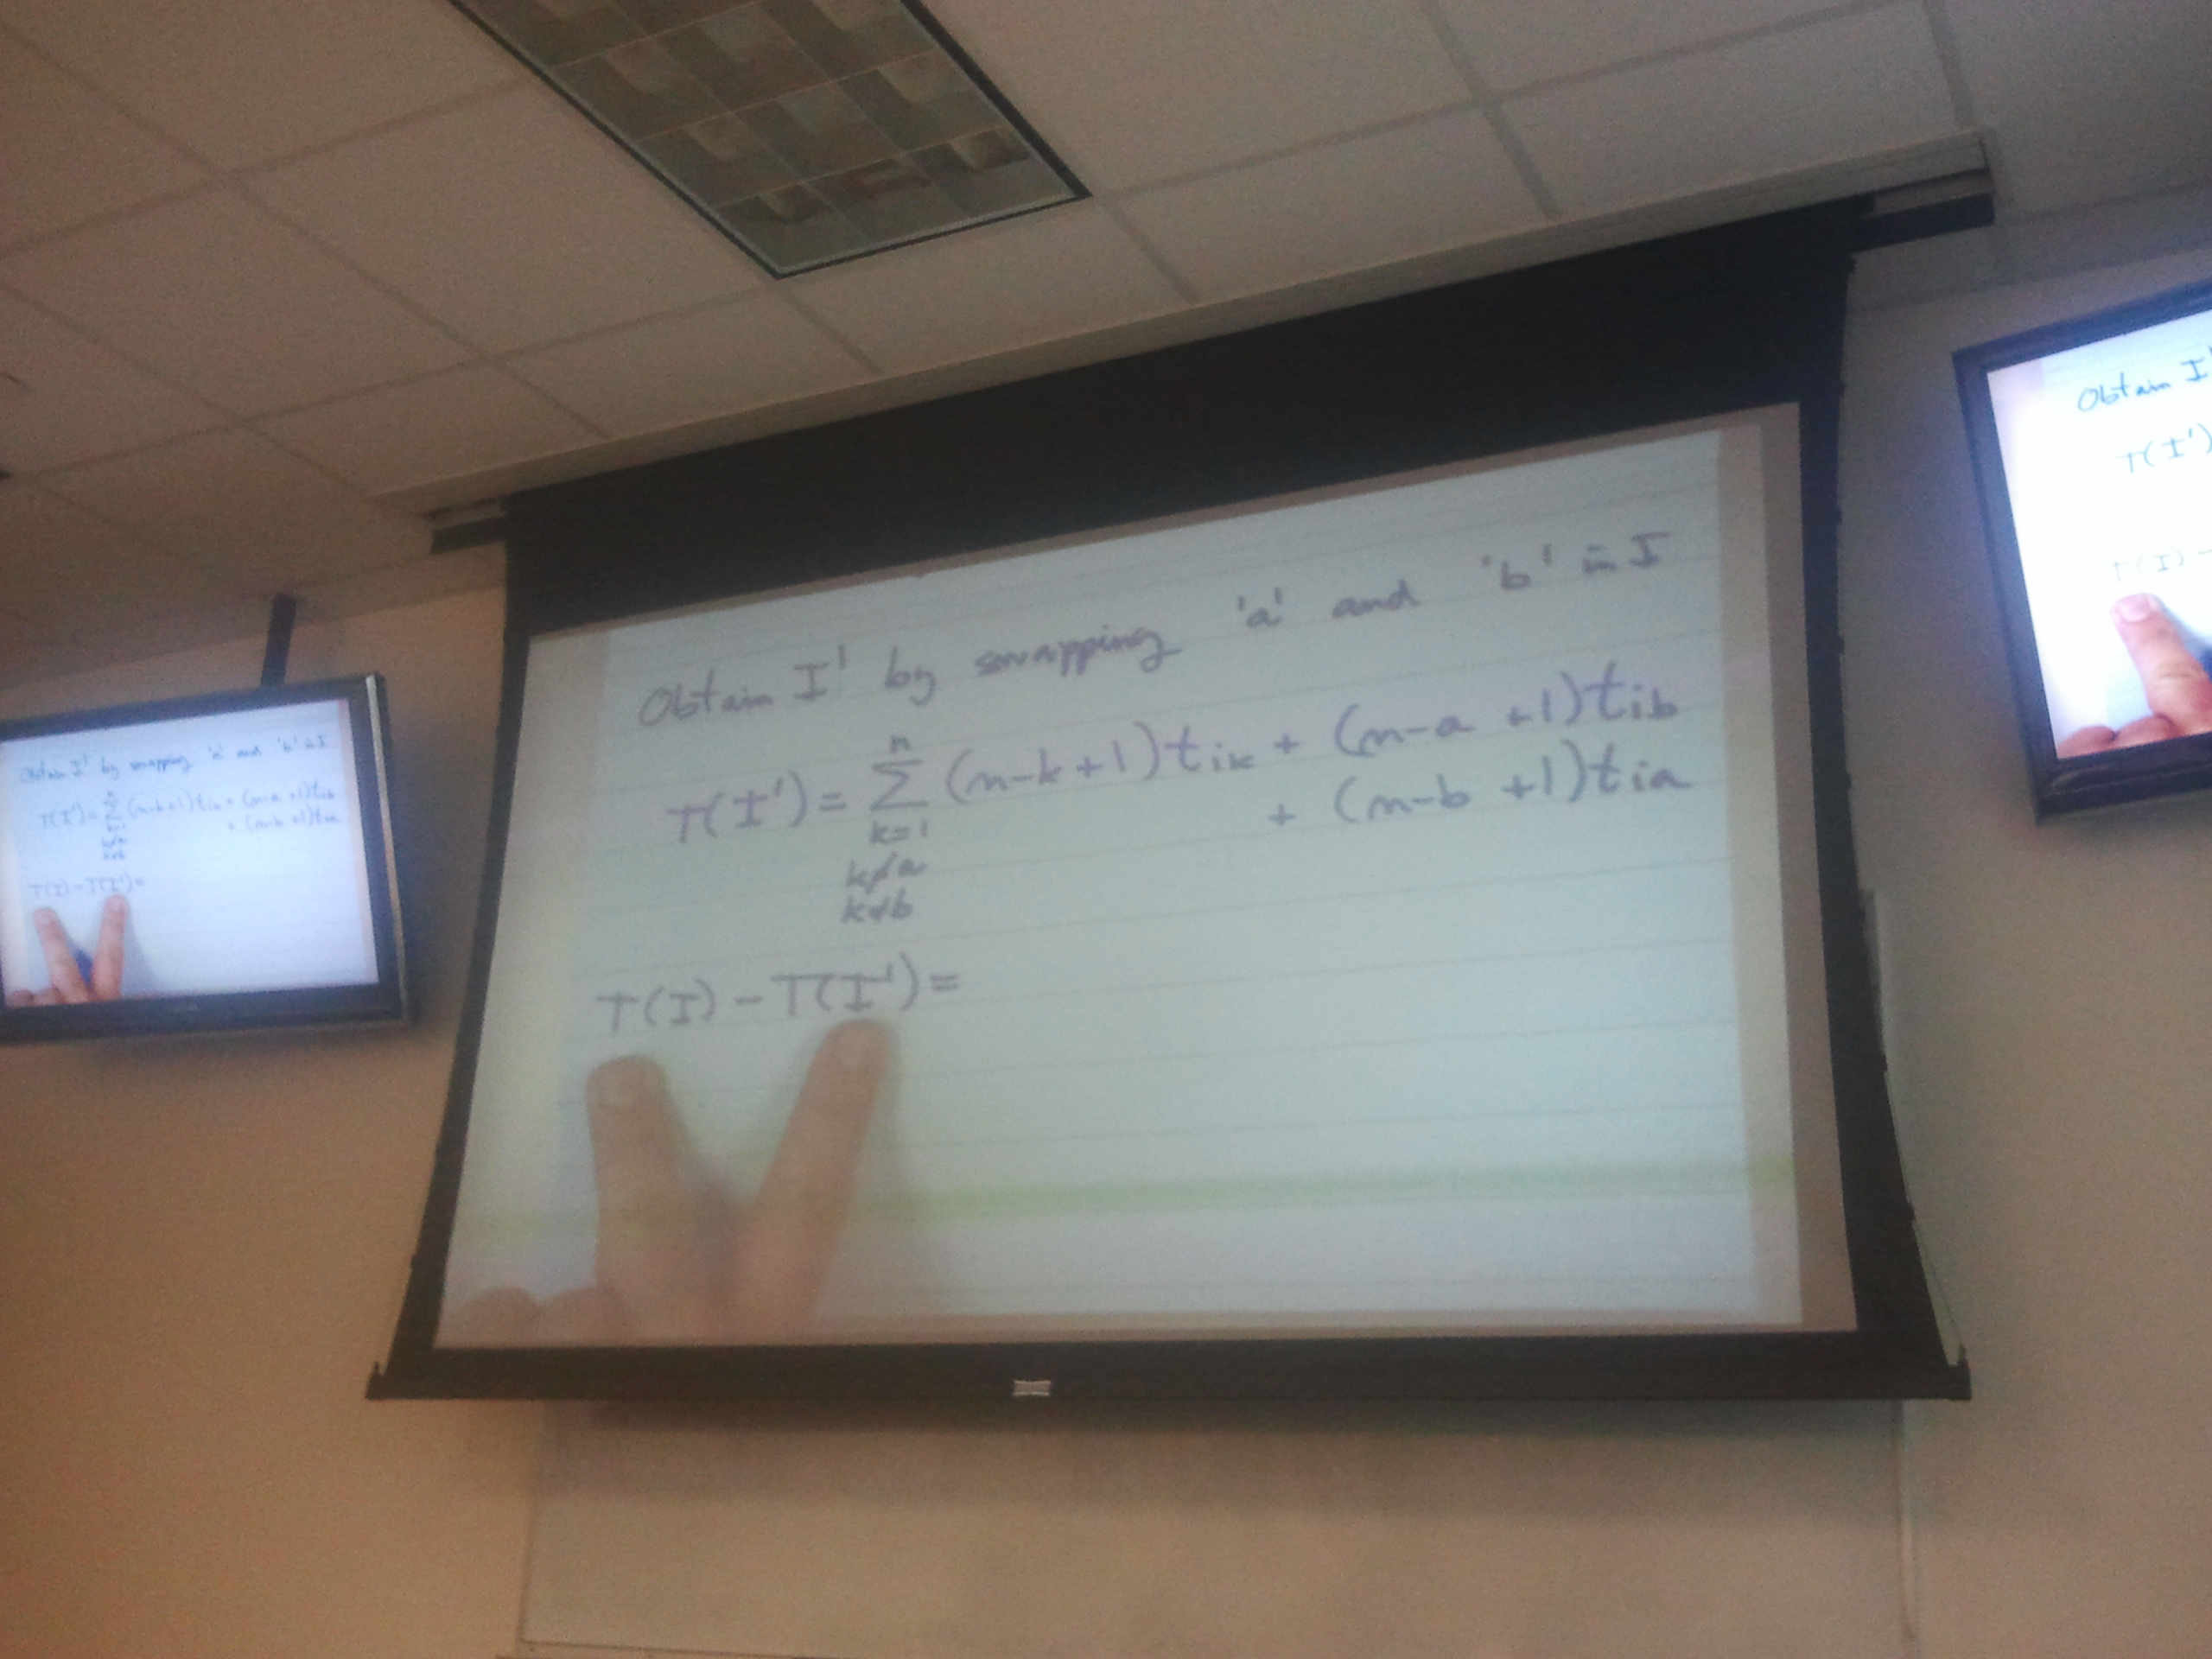 Obtain I' by swapping 'a' and 'b' in I
T(I') = n Σ k=1 k≠a k≠b (n-k+1)tik + (n-a+1)tib
+ (n-b+1)tia
T(I) - T(I') =
Obtain I' by swapping 'a' and 'b' in I
T(I') = n Σ k=1 k≠a k≠b (n-k+1)tik + (n-a+1)tib
+ (n-b+1)tia
T(I) - T(I') =
Obtain I'
T(I')
T(I) -